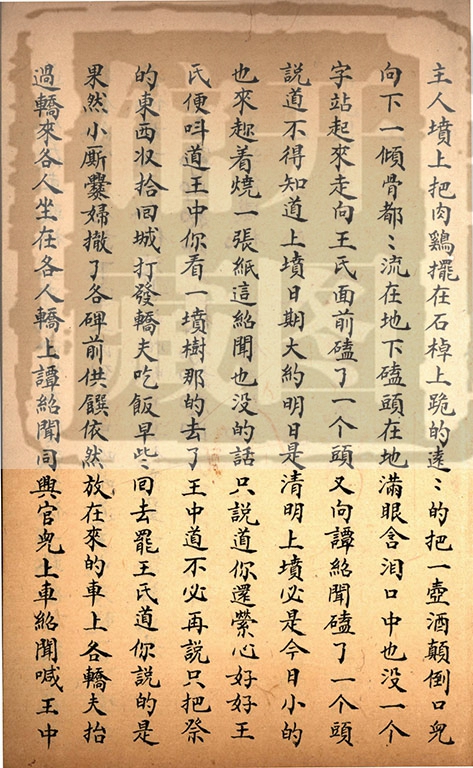 主人墳上把肉鷄擺在石棹上跪的遠〻的把一壺酒顛倒口兒
向下一傾骨都〻流在地下磕頭在地滿眼含泪口中也没一个
字站起來走向王氏面前磕了一个頭又向譚紹聞磕了一个頭
説道不得知道上墳日期大約明日是清明上墳必是今日小的
也來趂着燒一張紙這紹聞也没的話只説道你還縈心好好王
氏便呌道王中你看一墳樹那的去了王中道不必再説只把祭
的東西収拾回城打發轎夫吃飯早些〻回去罷王氏道你說的是
果然小厮爨婦撤了各碑前供饌依然放在來的車上各轎夫抬
過轎來各人坐在各人轎上譚紹聞同興官兒上車紹聞喊王中